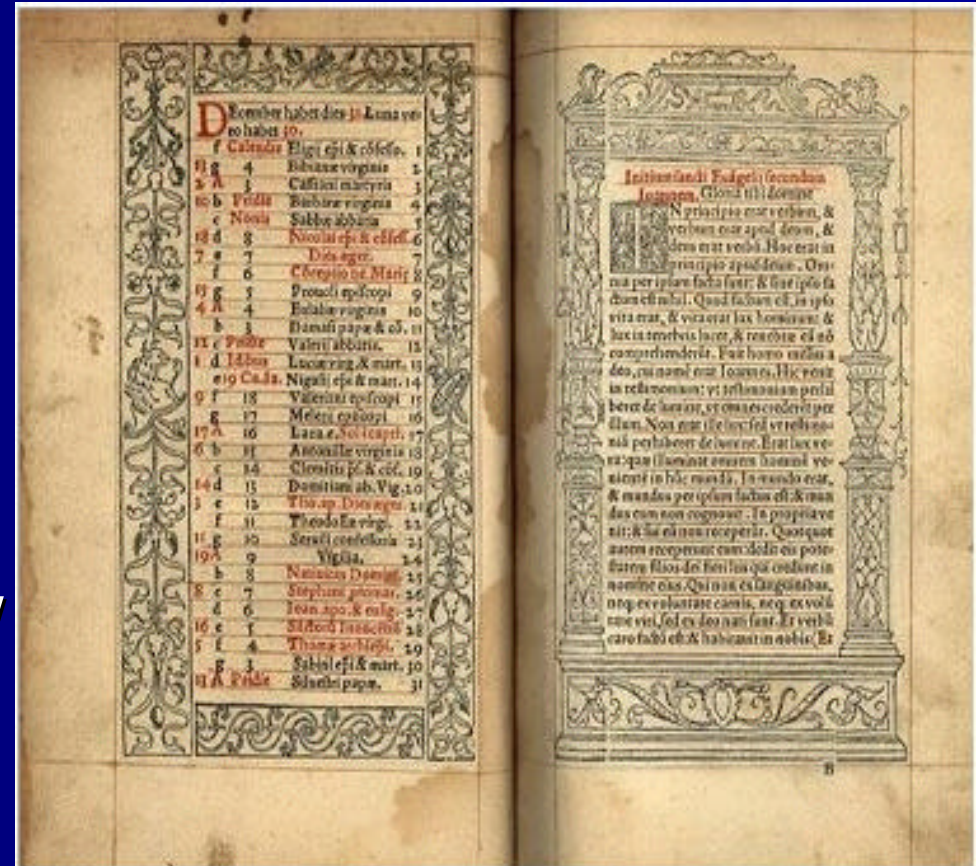 December habet dies 31. Luna ve-
ro habet 30.
f Calendis Eligij epi & cõfesso. 1
13 g 4 Bibianæ virginis 2
2 A 3 Cassiani martyris 3
10 b Pridie Barbaræ virginis 4
c Nonis Sabbæ abbatis 5
18 d 8 Nicolai epi & cõfess. 6
7 e 7 Dies eger. 7
f 6 Cõceptio be. Marię 8
15 g 5 Proculi episcopi 9
4 A 4 Eulaliæ virginis 10
b 3 Damasi papæ & cõ. 11
12 c Pridie Valerij abbatis. 12
1 d Idibus Luciæ virg. & mart. 13
e 19 Ca. Ia. Nigasij epi & mart. 14
9 f 18 Valeriani episcopi 15
g 17 episcopi 16
17 A 16 17
6 b 15 Antonillæ virginis 18
c 14 Clemẽtis & cõf. 19
14 d 13 Domitiani ab. Vig. 20
3 e 12 Tho. ap. Dies eger. 21
f 11 Theodosiæ virgi. 22
11 g 10 Serui confessoris 23
19 A 9 Vigilia. 24
b 8 Natiuitas Domini. 25
8 c 7 Stephani promar. 26
d 6 Ioan. apo. & euãg. 27
16 e 5 Innocẽtiũ 28
5 f 4 Thomæ archiepi. 29
g 3 Sabini epi & mart. 30
13 A Pridie Siluestri papæ. 31
Initium sancti Euãgelij secundum
Ioannem. Gloria tibi domine
IN principio erat verbum, &
verbum erat apud deum, &
deus erat verbũ. Hoc erat in
principio apud deum. Om-
nia per ipsum facta sunt: & sine ipso fa
ctum est nihil. Quod factum est, in ipso
vita erat, & vita erat lux hominum: &
lux in tenebris lucet, & tenebræ eã nõ
comprehenderũt. Fuit homo missus a
deo, cui nomẽ erat Ioannes. Hic venit
in testimonium: vt testimonium perhi
beret de lumine, vt omnes crederẽt per
illum. Non erat ille lux: sed vt testimo-
niũ perhiberet de lumine. Erat lux ve-
ra: quæ illuminat omnem hominẽ ve-
nientẽ in hũc mundũ. In mundo erat,
& mundus per ipsum factus est: & mun
dus eum non cognouit. In propria ve
nit: & sui eũ non receperũt. Quotquot
autem receperunt eum: dedit eis pote-
statem filios dei fieri his qui credunt in
nomine eius. Qui non ex sanguinibus,
neq; ex voluntate carnis, neq; ex volũ
tate viri, sed ex deo nati sunt. Et verbũ
caro factũ est: & habitauit in nobis: Et
B